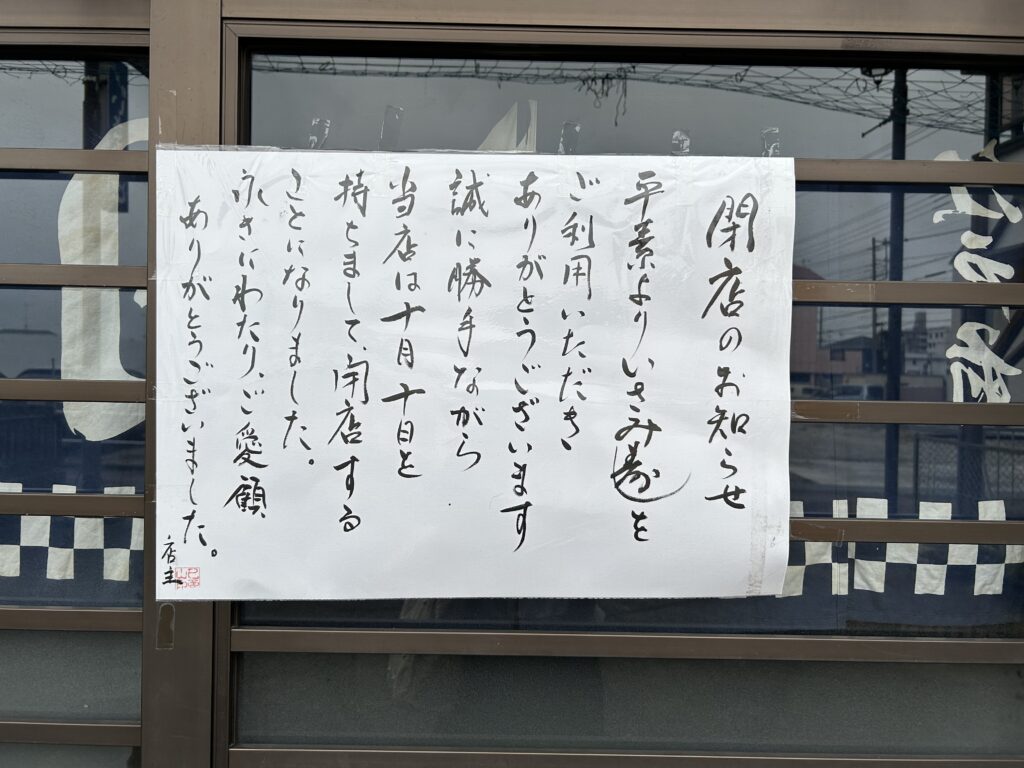 閉店のお知らせ
平素よりいさみ寿しを
ご利用いただき
ありがとうございます
誠に勝手ながら
当店は十月十日を
持ちまして、閉店する
ことになりました。
永きにわたり、ご愛顧
ありがとうございました。
店主